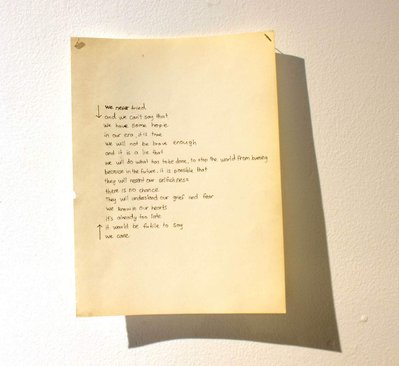 we never tried
and we can't say that
we have some hope
in our era, it is true
we will not be brave enough
and it is a lie that
we will do what has to be done, to stop the world from burning
because in the future, it is possible that
they will resent our selfishness
there is no chance
They will understand our grief and fear
we know in our hearts
it's already too late
it would be futile to say
we care